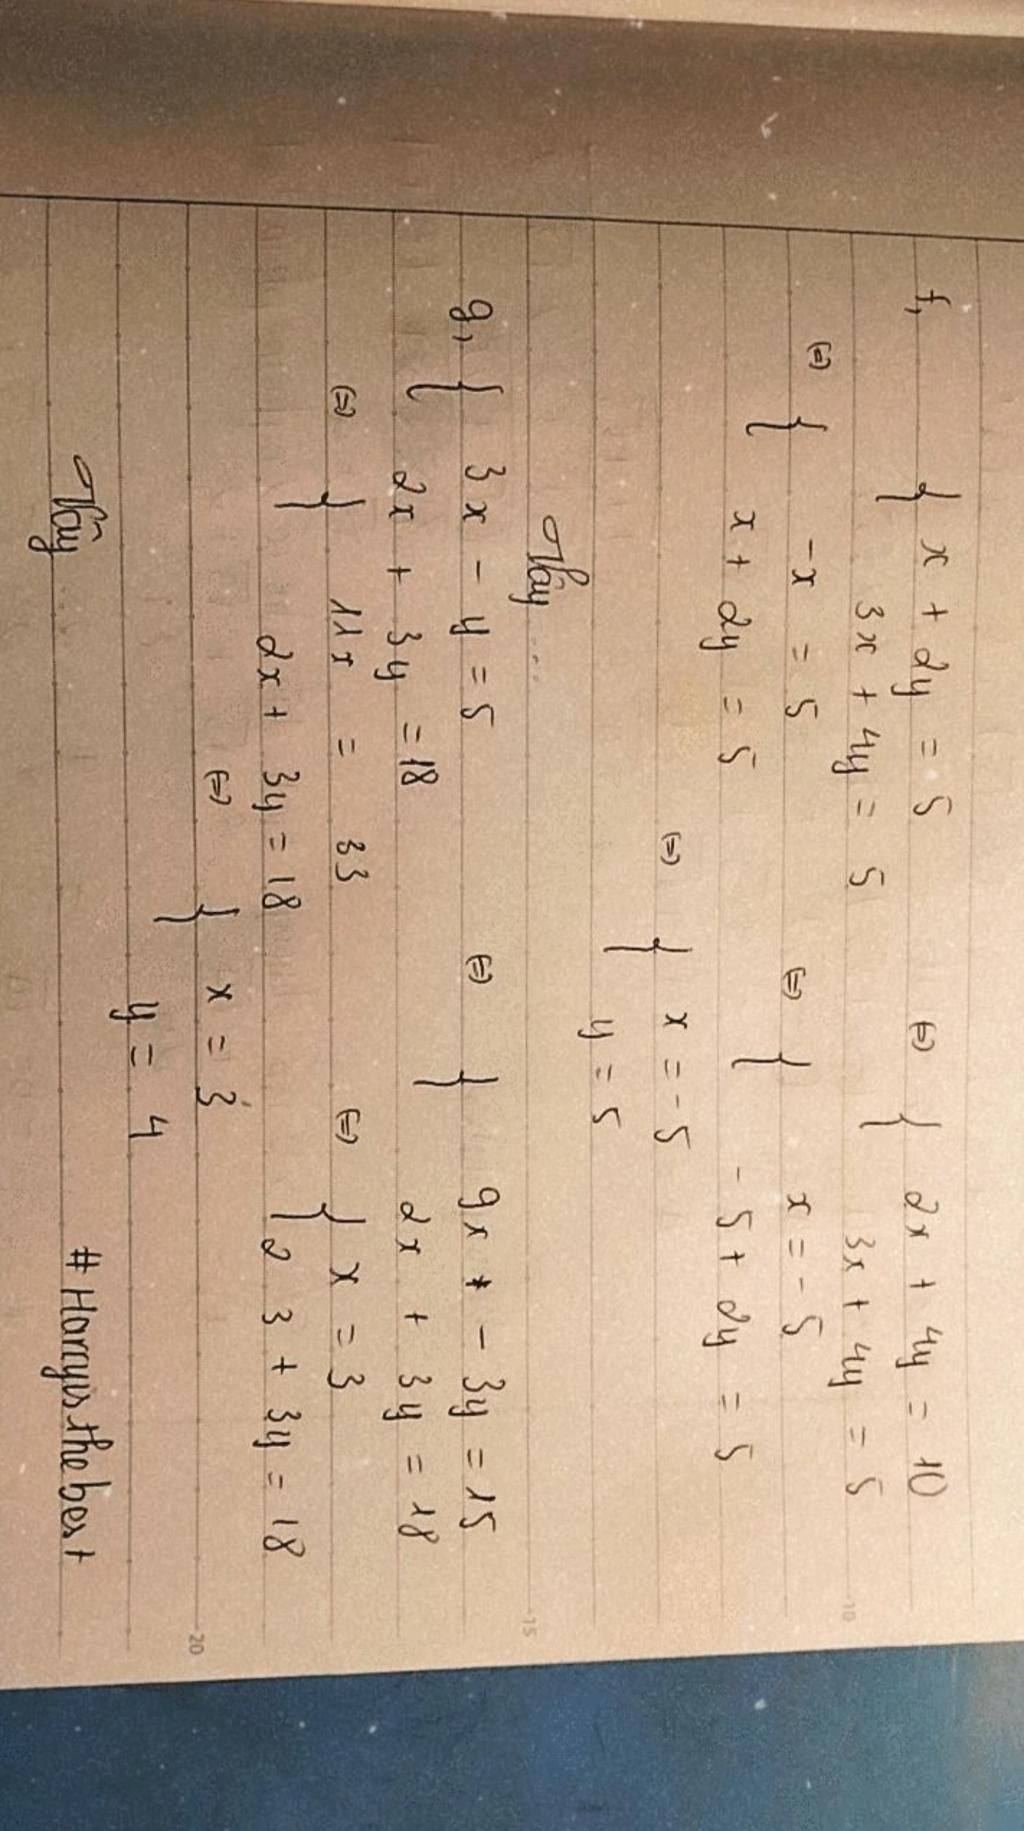 f, { x + 2y = 5 (=) { 2x + 4y = 10
3x + 4y = 5 3x + 4y = 5
(=) { -x = 5 (=) { x = -5
x + 2y = 5 -5 + 2y = 5
(=) { x = -5
y = 5
Vậy ...
g, { 3x - y = 5 (=) { 9x - 3y = 15
2x + 3y = 18 2x + 3y = 18
(=) { 11x = 33 (=) { x = 3
2x + 3y = 18 2 3 + 3y = 18
(=) { x = 3
y = 4
Vậy ... # Harryisthebest
-10
-15
-20